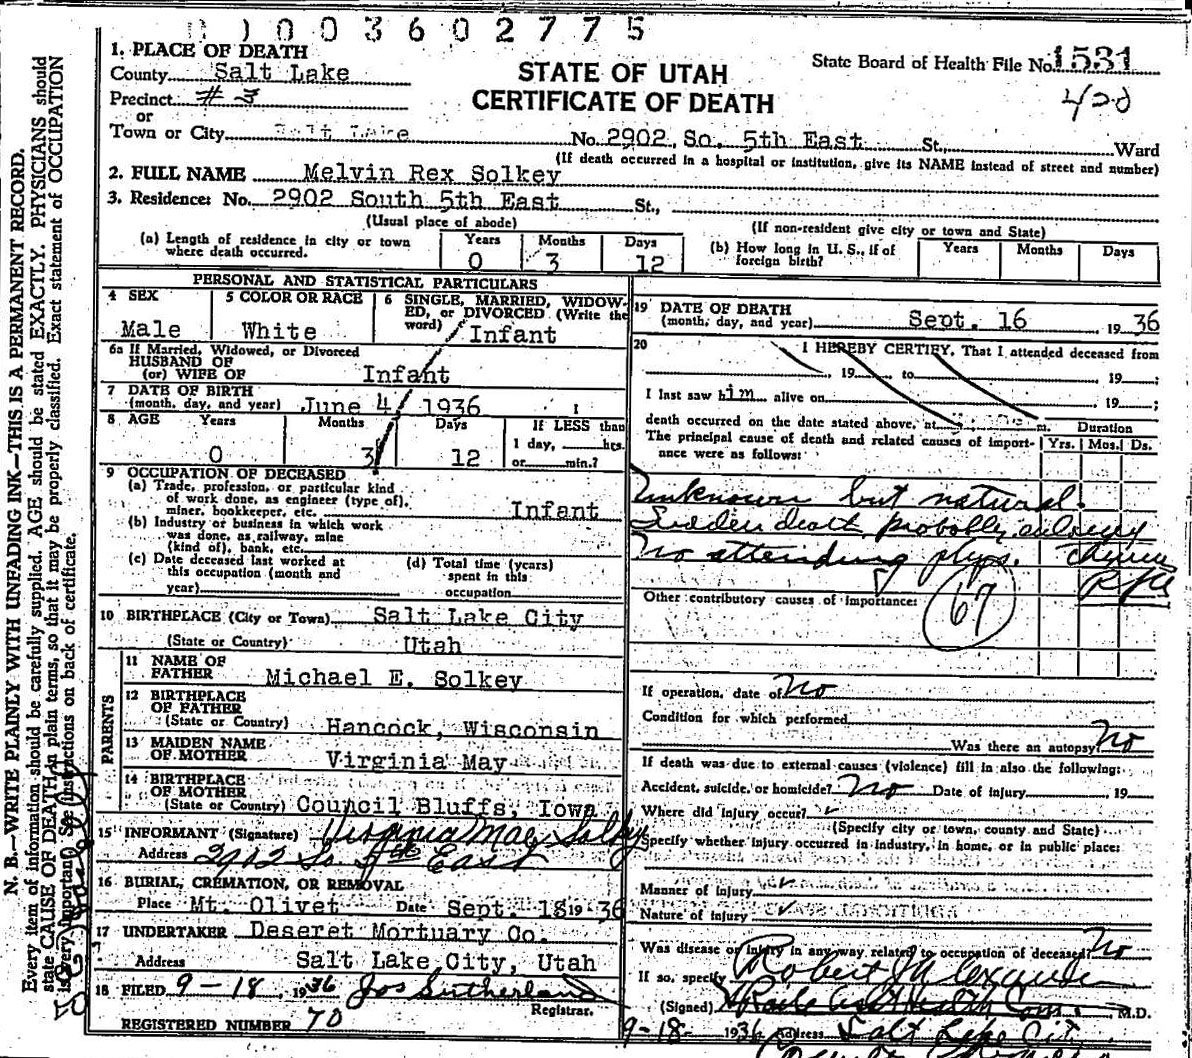 0 1 0 0 3 6 0 2 7 7 5
1. PLACE OF DEATH
County Salt Lake
Precinct # 3
or
Town or City Salt Lake No. 2902 So. 5th East St., Ward
(If death occurred in a hospital or institution, give its NAME instead of street and number)
STATE OF UTAH
CERTIFICATE OF DEATH
State Board of Health File No. 1531
420
2. FULL NAME Melvin Rex Solkey
3. Residence: No. 2902 South 5th East St.,
(Usual place of abode) (If non-resident give city or town and State)
(a) Length of residence in city or town where death occurred. Years 0 Months 3 Days 12
(b) How long in U. S., if of foreign birth? Years Months Days
PERSONAL AND STATISTICAL PARTICULARS
4 SEX Male
5 COLOR OR RACE White
6 SINGLE, MARRIED, WIDOW-
ED, or DIVORCED (Write the
word) Infant
6a If Married, Widowed, or Divorced
HUSBAND OF
(or) WIFE OF Infant
7 DATE OF BIRTH
(month, day, and year) June 4, 1936
8 AGE Years 0 Months 3 Days 12
If LESS than
1 day, hrs.
or min.?
9 OCCUPATION OF DECEASED
(a) Trade, profession, or particular kind
of work done, as engineer (type of),
miner, bookkeeper, etc. Infant
(b) Industry or business in which work
was done, as railway, mine
(kind of), bank, etc.
(c) Date deceased last worked at
this occupation (month and
year)
(d) Total time (years)
spent in this
occupation
10 BIRTHPLACE (City or Town) Salt Lake City
(State or Country) Utah
PARENTS
11 NAME OF
FATHER Michael E. Solkey
12 BIRTHPLACE
OF FATHER
(State or Country) Hancock, Wisconsin
13 MAIDEN NAME
OF MOTHER Virginia May
14 BIRTHPLACE
OF MOTHER
(State or Country) Council Bluffs, Iowa
15 INFORMANT (Signature) Virginia Mae Solkey
Address 2902 So. 5th East
16 BURIAL, CREMATION, OR REMOVAL
Place Mt. Olivet Date Sept. 18 19 36
17 UNDERTAKER Deseret Mortuary Co.
Address Salt Lake City, Utah
18 FILED 9-18, 1936 Jos Sutherland
Registrar.
REGISTERED NUMBER 70
19 DATE OF DEATH
(month, day, and year) Sept. 16, 19 36
20 I HEREBY CERTIFY, That I attended deceased from
, 19 to , 19 ;
I last saw him alive on , 19 ;
death occurred on the date stated above, at m. Duration
The principal cause of death and related causes of import-
ance were as follows: Yrs. Mos. Ds.
Unknown but natural.
Sudden death, probably
No attending phys.
Other contributory causes of importance:
67
If operation, date of No
Condition for which performed
Was there an autopsy? No
If death was due to external causes (violence) fill in also the following:
Accident, suicide, or homicide? No Date of injury , 19
Where did injury occur?
(Specify city or town, county and State)
Specify whether injury occurred in industry, in home, or in public place:
Manner of injury
Nature of injury
Was disease or injury in any way related to occupation of deceased? No
If so, specify
Robert
(Signed) Health Com. M.D.
9-18- 1936 Address Salt Lake City
N. B.—WRITE PLAINLY WITH UNFADING INK—THIS IS A PERMANENT RECORD.
Every item of information should be carefully supplied. AGE should be stated EXACTLY. PHYSICIANS should
state CAUSE OF DEATH in plain terms, so that it may be properly classified. Exact statement of OCCUPATION
is very important. See instructions on back of certificate.